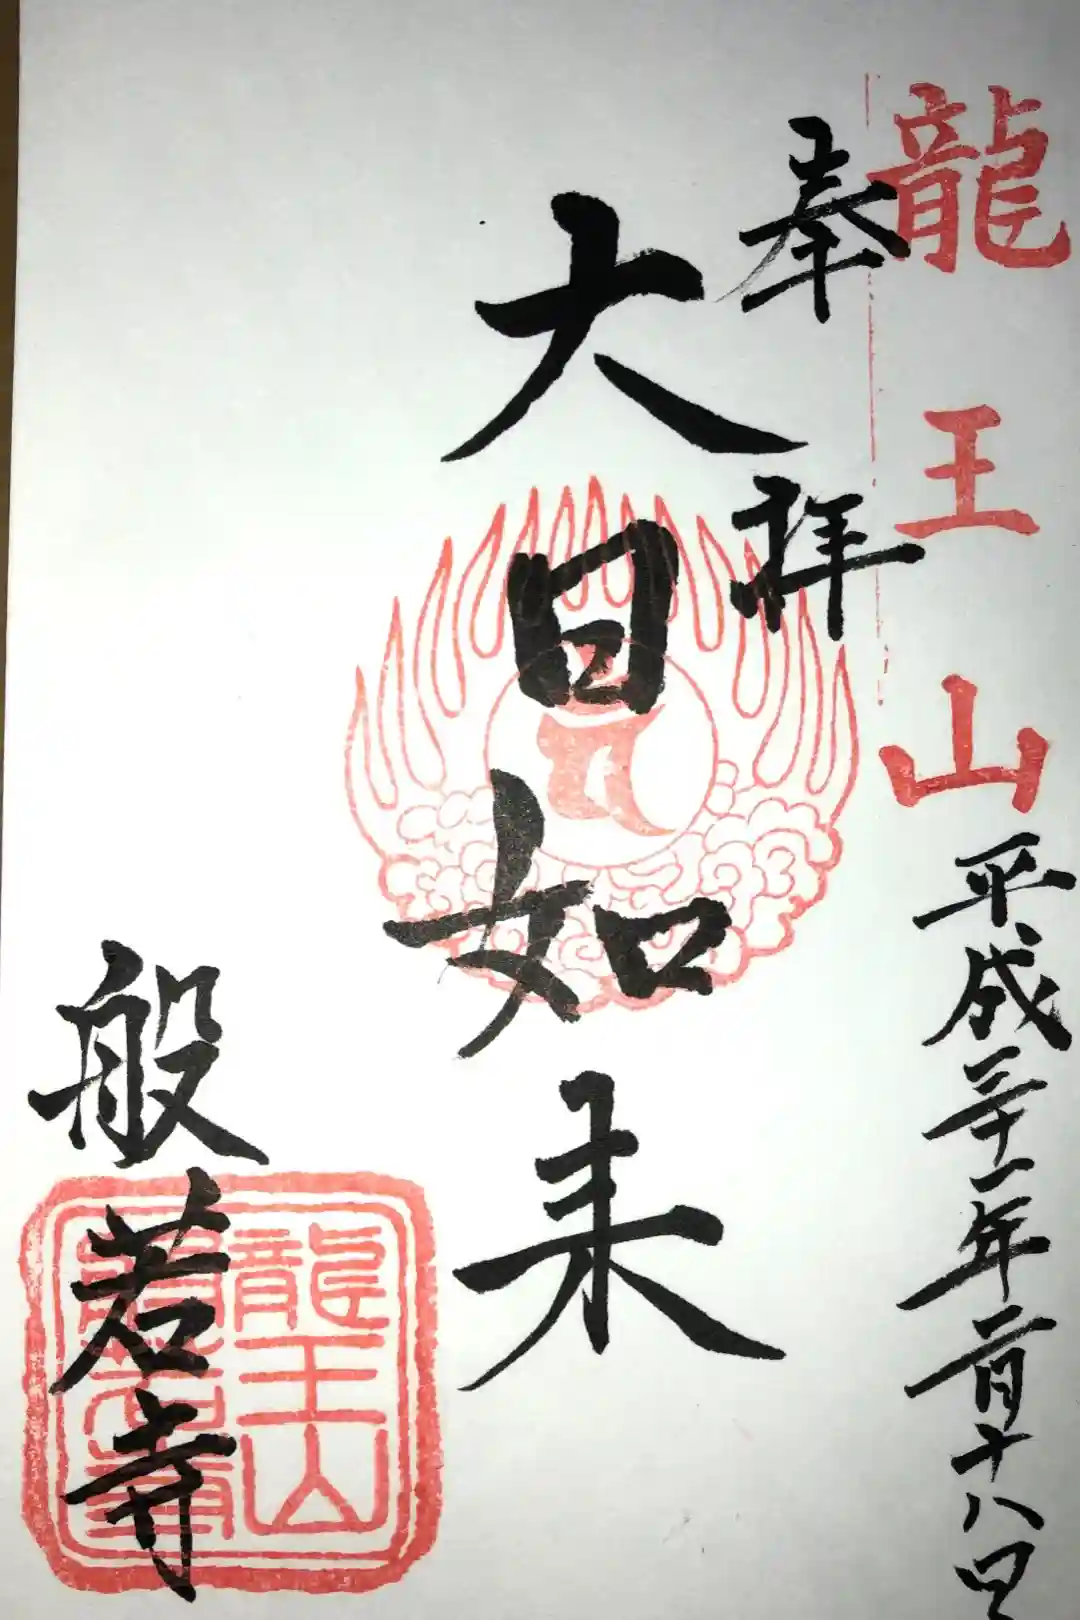 龍王山
平成三十一年二月十八日
奉拝
大日如来
般若寺
龍王山
般若寺